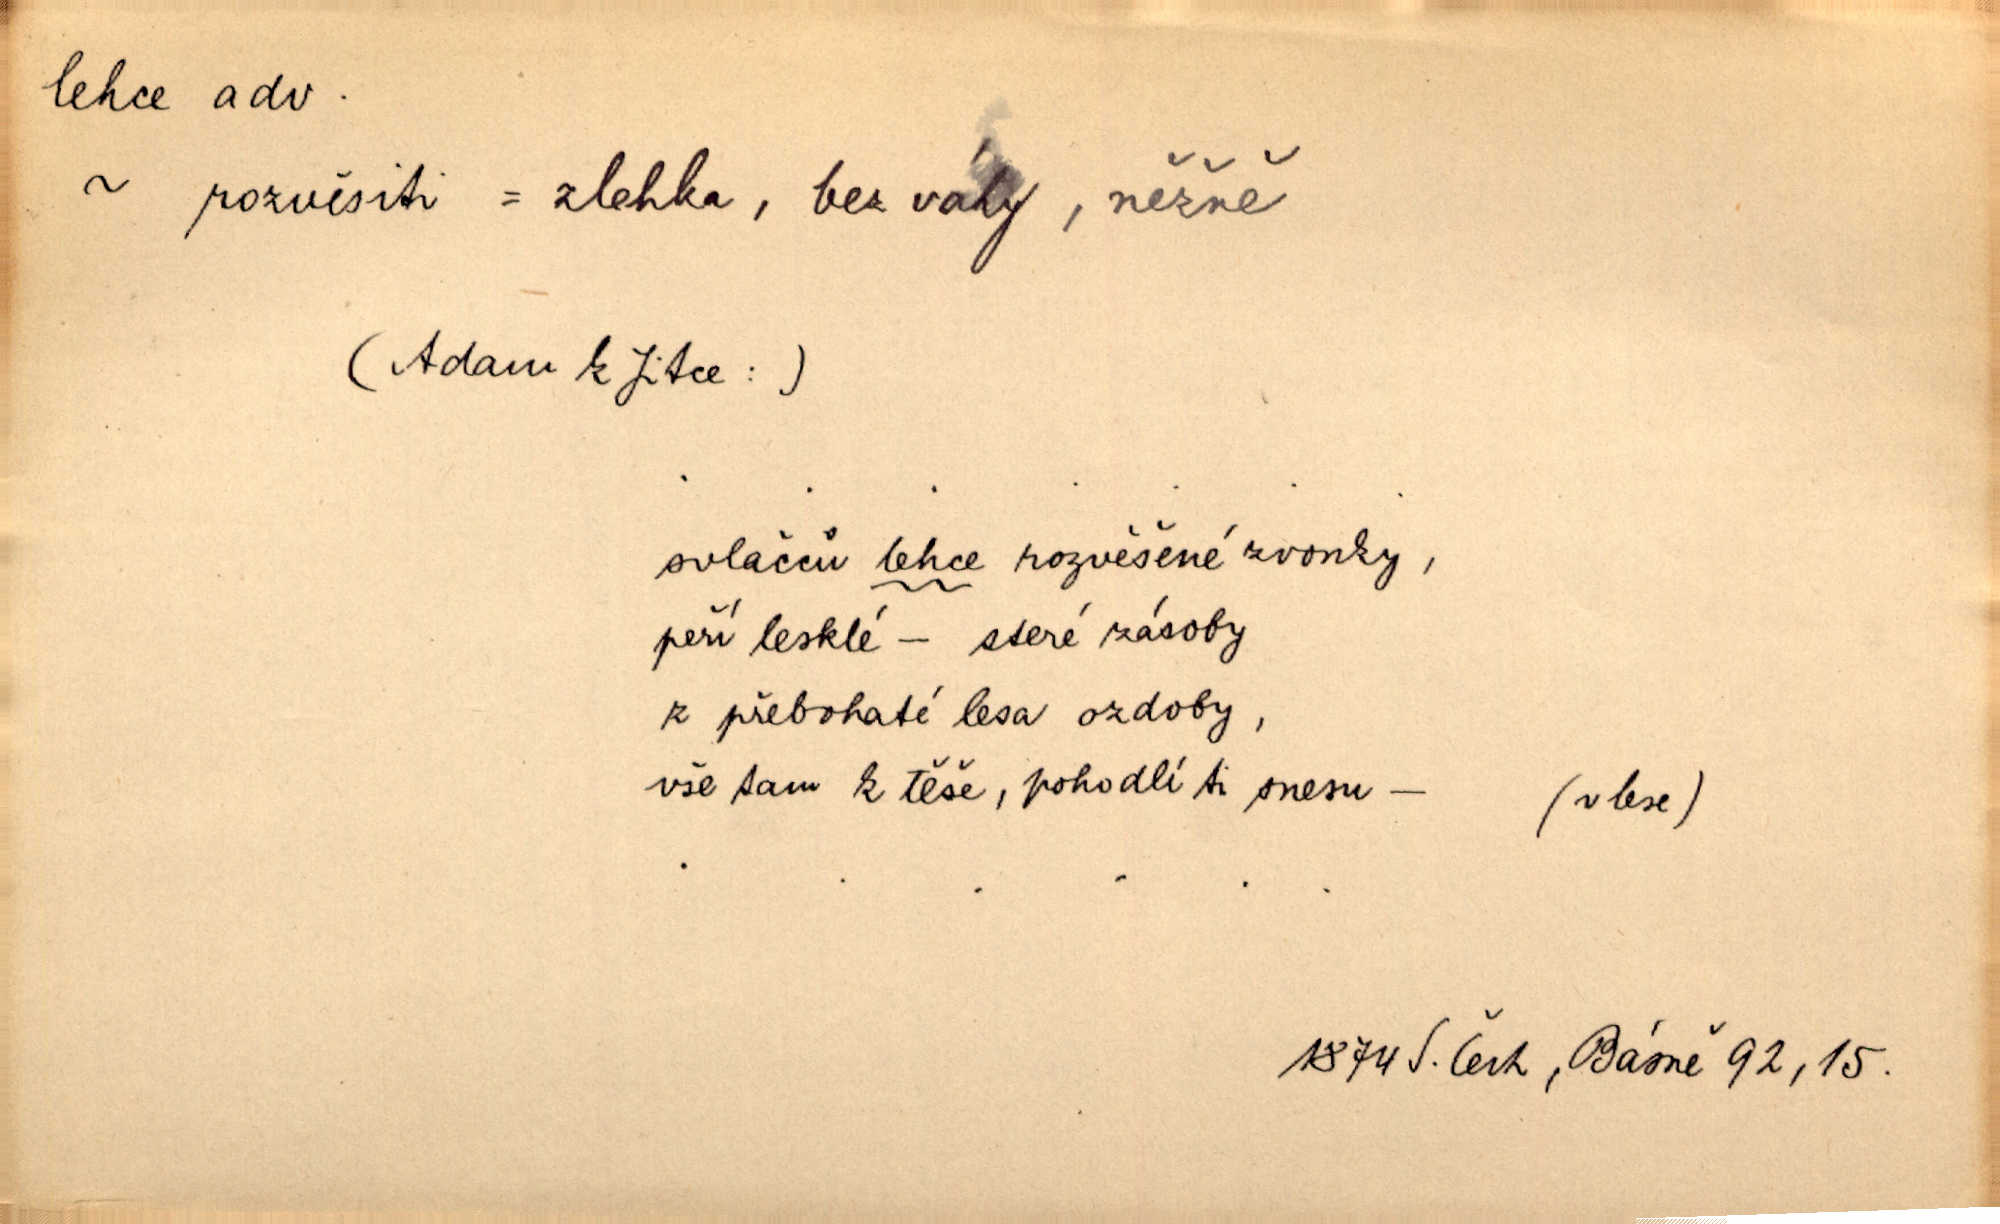 lehce adv.
~ rozvěsiti = zlehka, bez váhy, něžně
(Adam k Jitce:)
. . . . . . .
svlačců lehce rozvěšené zvonky,
peří lesklé – steré zásoby
z přebohaté lesa ozdoby,
vše tam k těše, pohodlí ti snesu – (v lese)
. . . . . .
1874 S. Čech, Básně 92, 15.